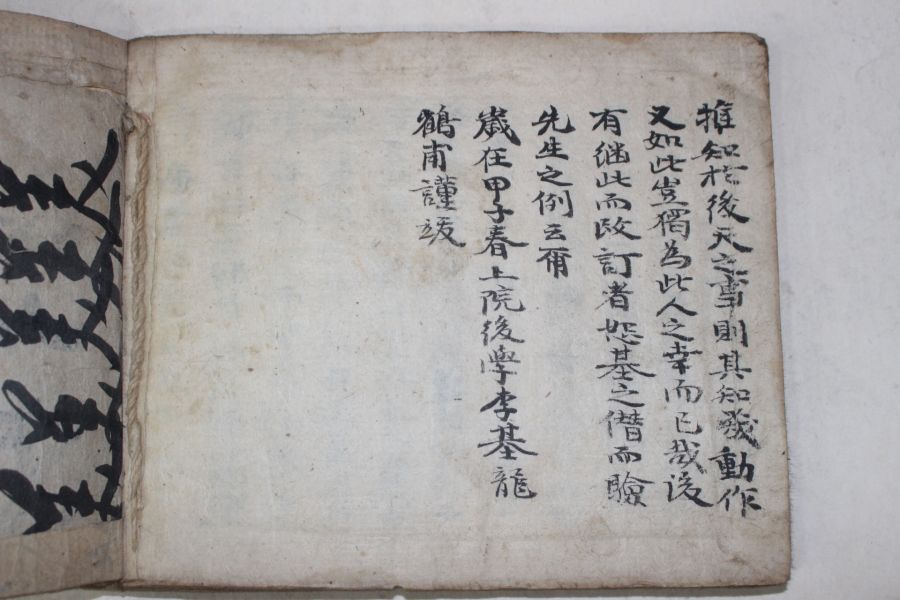 推知於後天之事則其知幾動作
又如此豈獨為此人之幸而已哉後
有継此而改訂者恕基之僭而
先生之例云爾
歲在甲子春上院後學李基龍
鶴甫謹跋